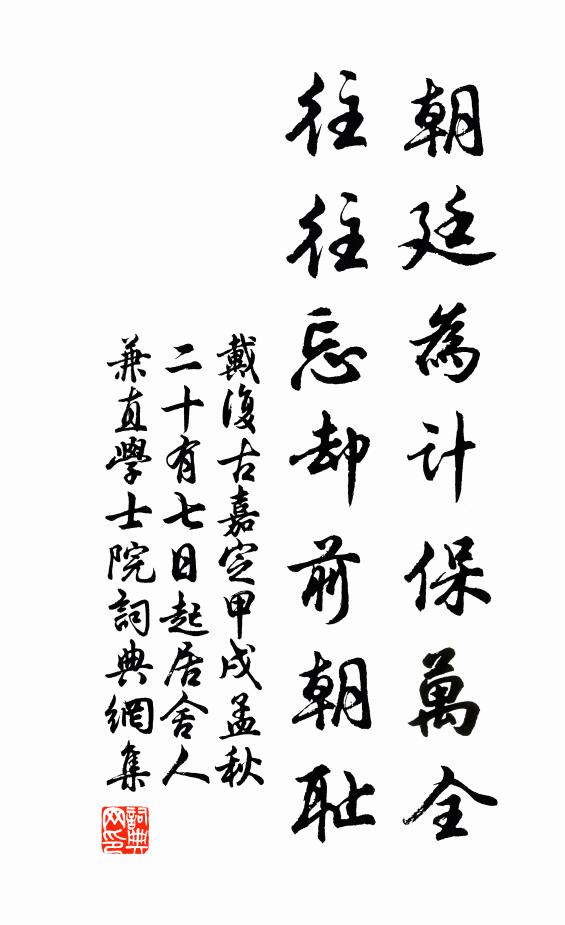 朝廷為计保萬全
往往忘却前朝耻
戴復古嘉定甲戌孟秋
二十有七日起居舍人
兼直學士院詞典網集
詞典网印